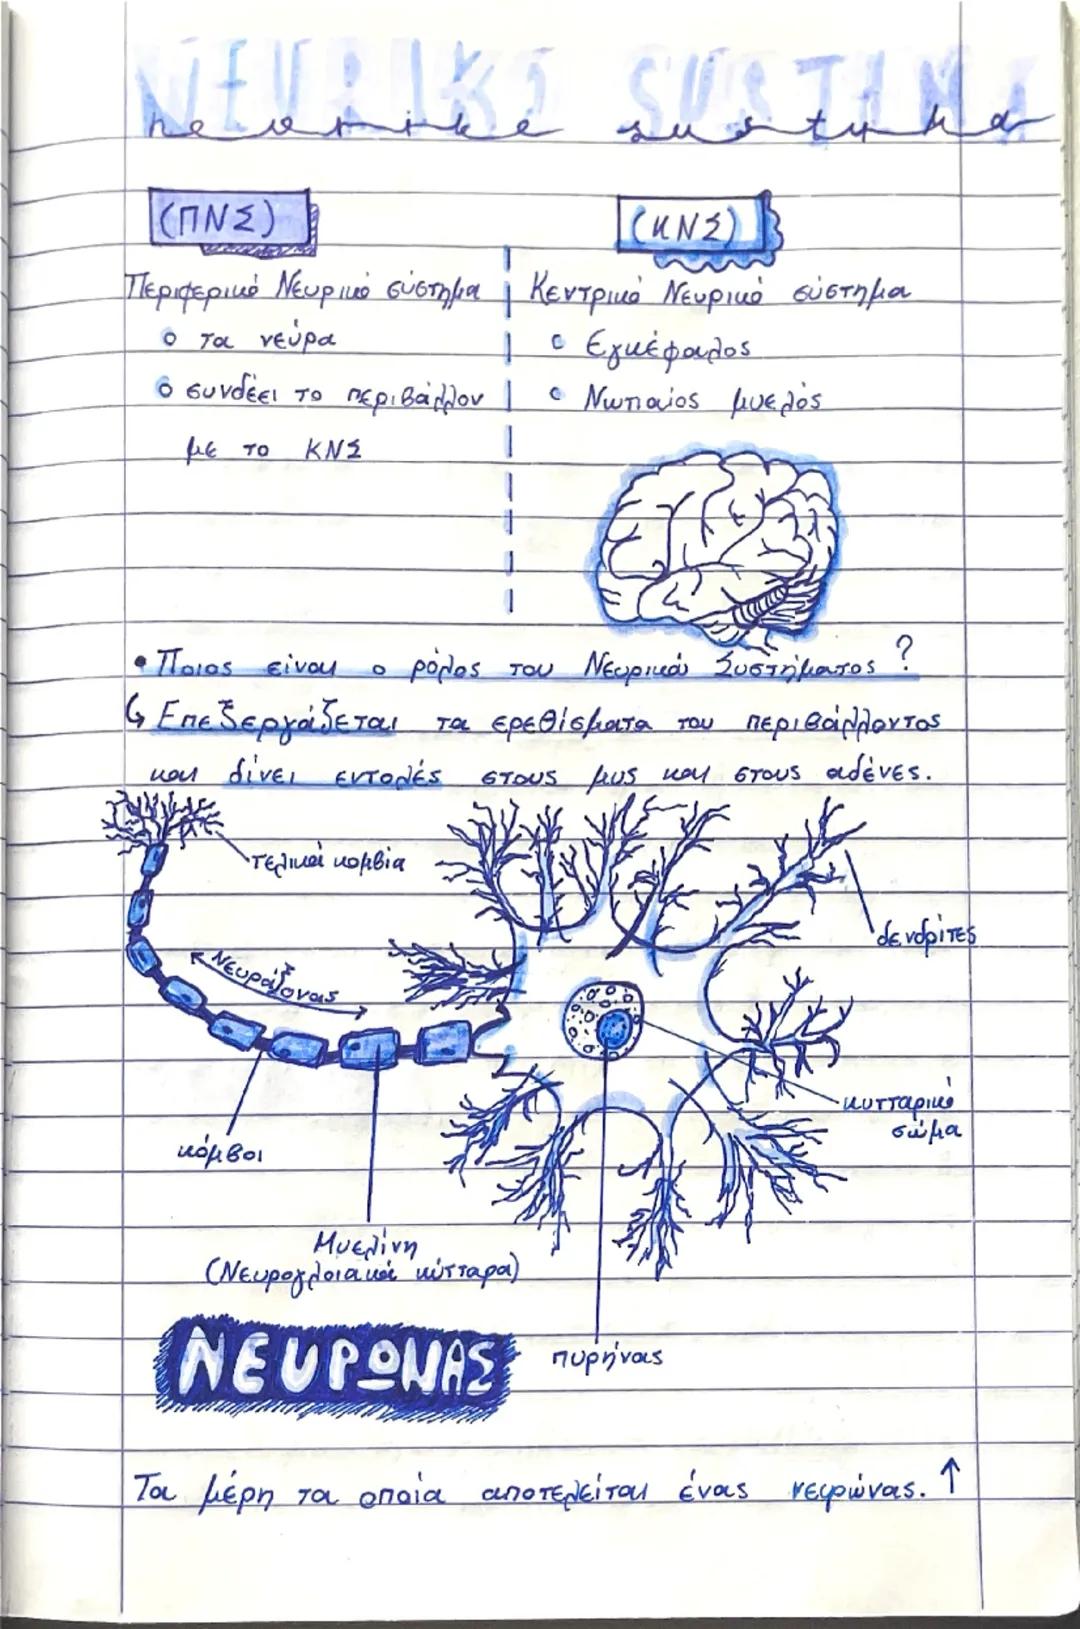 NEVRIKO SUSTIMA
nevriko sustima
(ΠΝΣ)
Περιφερικό Νευρικό σύστημα
ο τα νεύρα
ο συνδέει το περιβάλλον
με το ΚΝΣ
(ΚΝΣ)
Κεντρικό Νευρικό σύστημα
ο Εγκέφαλος
ο Νωτιαίος μυελός
• Ποιος είναι ο ρόλος του Νευρικού Συστήματος ?
↳ Επεξεργάζεται τα ερεθίσματα του περιβάλλοντος
και δίνει εντολές στους μυς και στους αδένες.
τελικά κομβία
δενδρίτες
Νευράξονας
κυτταρικό
σώμα
κόμβοι
Μυελίνη
(Νευρογλοιακά κύτταρα)
πυρήνας
ΝΕΥΡΩΝΑΣ
Τα μέρη τα οποία αποτελείται ένας νευρώνας. ↑